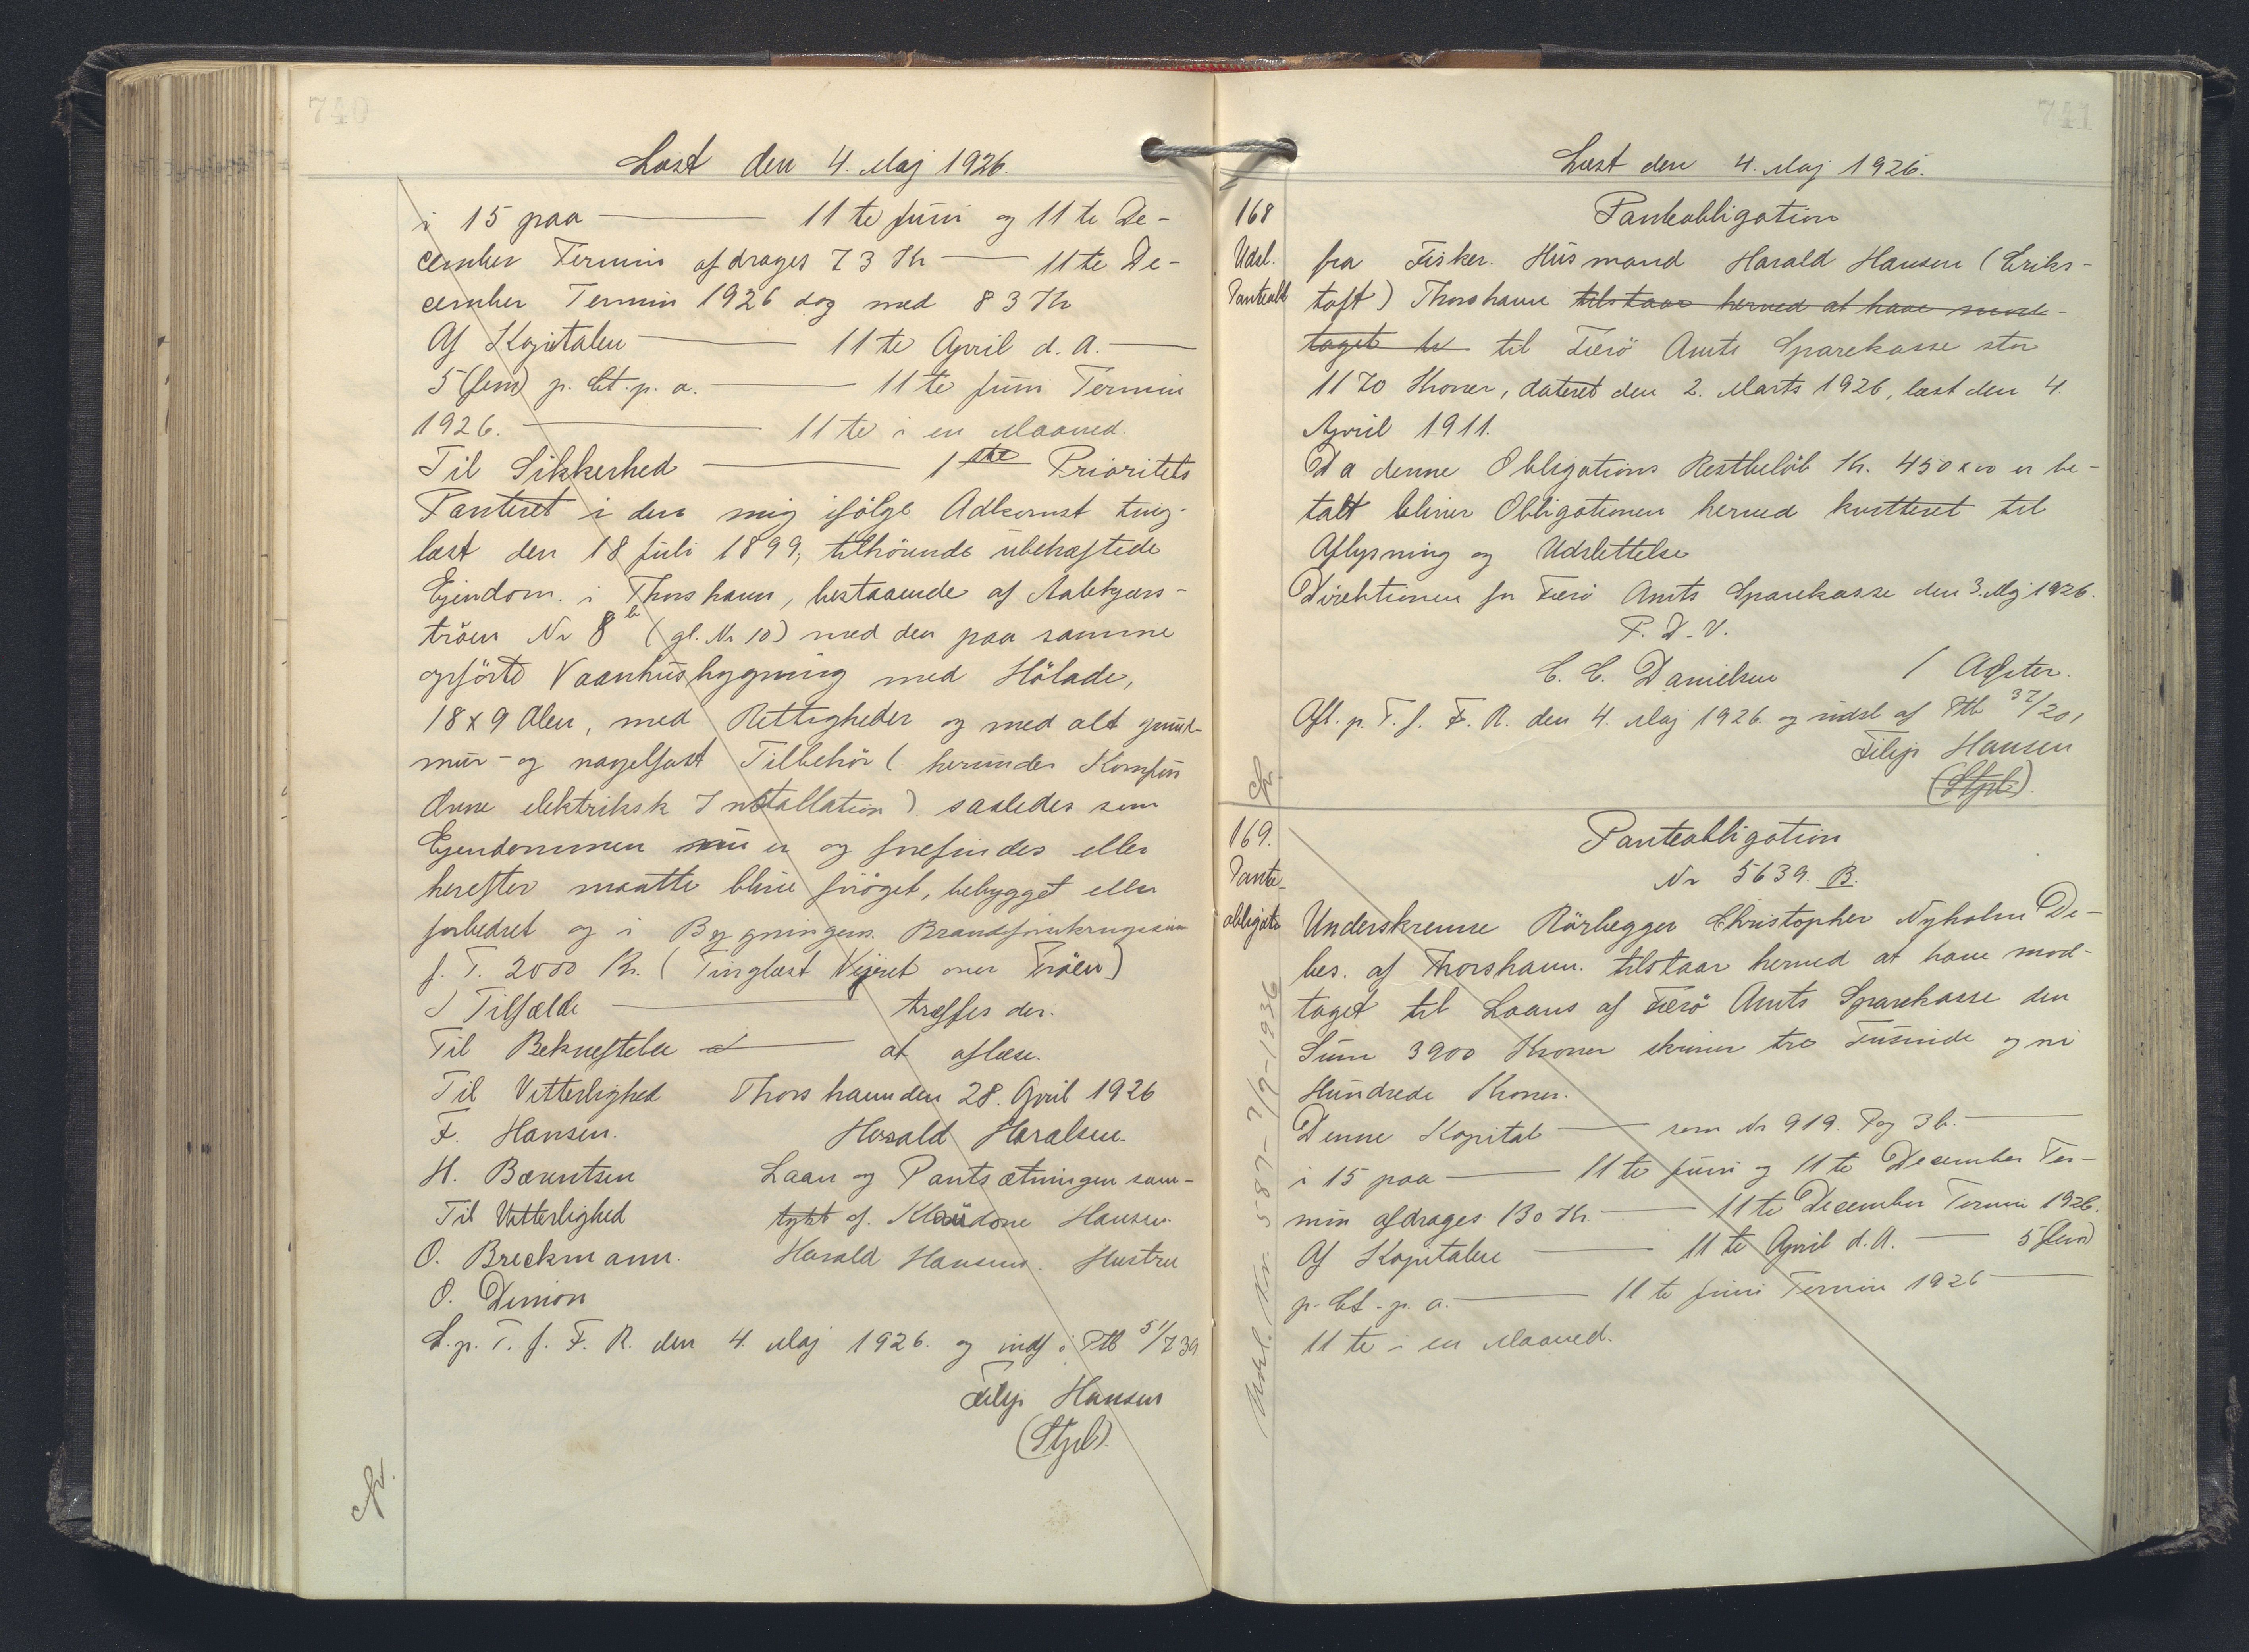 740
Læst den 4. Maj 1926.
i 15 paa — 11te Juni og 11te De-
cember Termin afdrages 73 Kr — 11te De-
cember Termin 1926 dog med 83 Kr
Af Kapitalen — 11te April d. A. —
5 (fem) p. Ct. p. a. — 11te Juni Termin
1926. — 11te i en Maaned.
Til Sikkerhed — 1ste Prioritets
Panteret i den mig ifølge Adkomst ting-
læst den 18 Juli 1899, tilhørende ubehæftede
Ejendom i Thorshavn, bestaaende af
trøen Nr 8b (gl. Nr 10) med den paa samme
opførte Vaanhusbygning med Hølade,
18 x 9 Alen, med Rettigheder og med alt grund-
mur- og nagelfast Tilbehør (herunder Komfur
Ovne elektrisk Installation) saaledes som
Ejendommen nu er og forefindes eller
herefter maatte blive forøget, bebygget eller
forbedret og i Bygningens Brandforsikringssum
f. T. 2000 Kr. (Tinglæst Vejret over Trøen)
I Tilfælde — træffes der.
Til Bekræftelse — at aflæse.
Til Vitterlighed Thorshavn den 28. April 1926
F. Hansen. Harald Haralsen.
H. Bærentsen Laan og Pantsætningen sam-
Til Vitterlighed tykt af Hansen
O. Breckmann. Harald Hansens Hustru
O. Dimon
L. p. T. f. F. R. den 4. Maj 1926. og indf i Ptb 51/739
Filip Hansen
(Stpl).
cfr.
741
Læst den 4. Maj 1926.
168
Udsl.
Panteobl
Panteobligation
fra Fisker. Husmand Harald Hansen (Eriks-
toft) Thorshavn tilstaar herved at have mod-
taget til Færø Amts Sparekasse stor
1170 Kroner, dateret den 2. Marts 1926, læst den 4.
April 1911.
Da denne Obligations Restbeløb Kr. 450 x 00 er be-
talt bliver Obligationen herved kvitteret til
Aflysning og Udslettelse
Direktionen for Færø Amts Sparekasse den 3. Maj 1926.
P. D. V.
C. C. Danielsen /
Afl. p. T. f. F. R. den 4. Maj 1926. og udsl af Ptb 37/201
Filip Hansen
(Stpl).
cfr.
169.
Pante-
obligatio
Panteobligation
Nr 5639. B.
Underskrevne Rørlægger Christopher Nyholm De-
bes. af Thorshavn. tilstaar herved at have mod-
taget til Laans af Færø Amts Sparekasse den
Sum 3900 Kroner skriver tre Tusinde og ni
Hundrede Kroner.
Denne Kapital — som Nr 919. Pag 36. —
i 15 paa — 11te Juni og 11te December Ter-
min afdrages 130 Kr. — 11te December Termin 1926.
Af Kapitalen — 11te April d. A. — 5 (fem)
p. Ct. p. a. — 11te Juni Termin 1926 —
11te i en Maaned.
Udsl. Nr. 587 - 7/9-1936